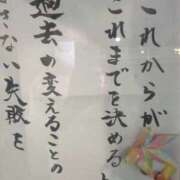 これからが
これまでを決める
過去の変えることの
できない失敗を